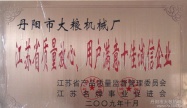 丹阳市大粮机械厂
江苏省质量放心、用户满意十佳诚信企业
江苏省产品质量监督管理委员会
江苏省名牌事业促进会
二00九年十月